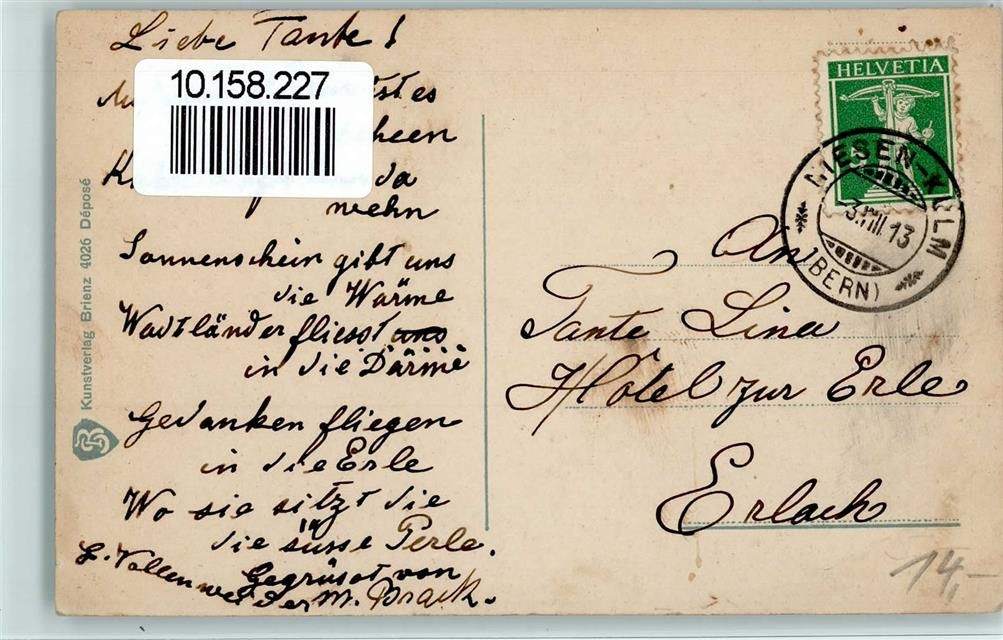 Liebe Tante!
10.158.227
ist es
heen
da
wehn
Sonnenschein gibt uns
die Wärme
Wadtländer fliesst uns
in die Därme
Gedanken fliegen
in die Erle
Wo sie sitzt die
die süsse Perle.
Gegrüsst von
M. Brack.
Kunstverlag Brienz 4026 Déposé
HELVETIA
NIESEN-KULM
3.VIII.13
(BERN)
An
Tante Lina
Hôtel zur Erle
Erlach
14,-